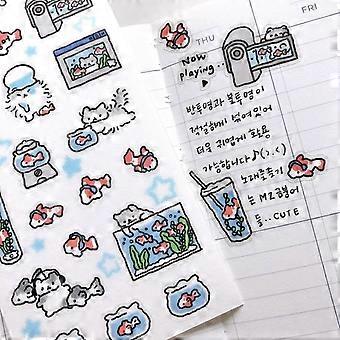 THU
FRI
Now
playing..
▶
반투명과 불투명이
적절하게 섞여있어
더욱 귀엽게 활용
가능합니다♪(>.<)
노래 춤추기
는 MZ 햄어
들.. CUTE